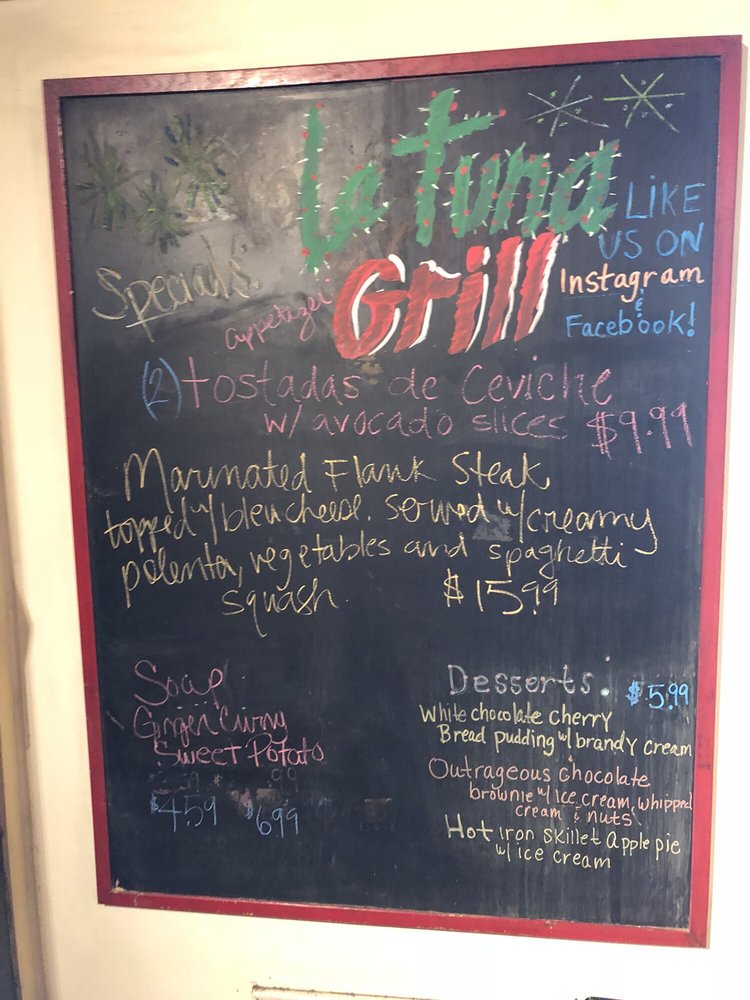 La Tuna
Grill
LIKE
US ON
Instagram
&
Facebook!
Specials:
appetizer
(2) tostadas de Ceviche
w/ avocado slices $9.99
Marinated Flank Steak
topped w/ bleu cheese. Served w/ creamy
polenta, vegetables and spaghetti
squash. $15.99
Soup
Ginger Curry
Sweet Potato
$4.59 $6.99
Desserts. $5.99
White chocolate cherry
Bread pudding w/ brandy cream
Outrageous chocolate
brownie w/ ice cream, whipped
cream & nuts.
Hot iron skillet Apple pie
w/ ice cream